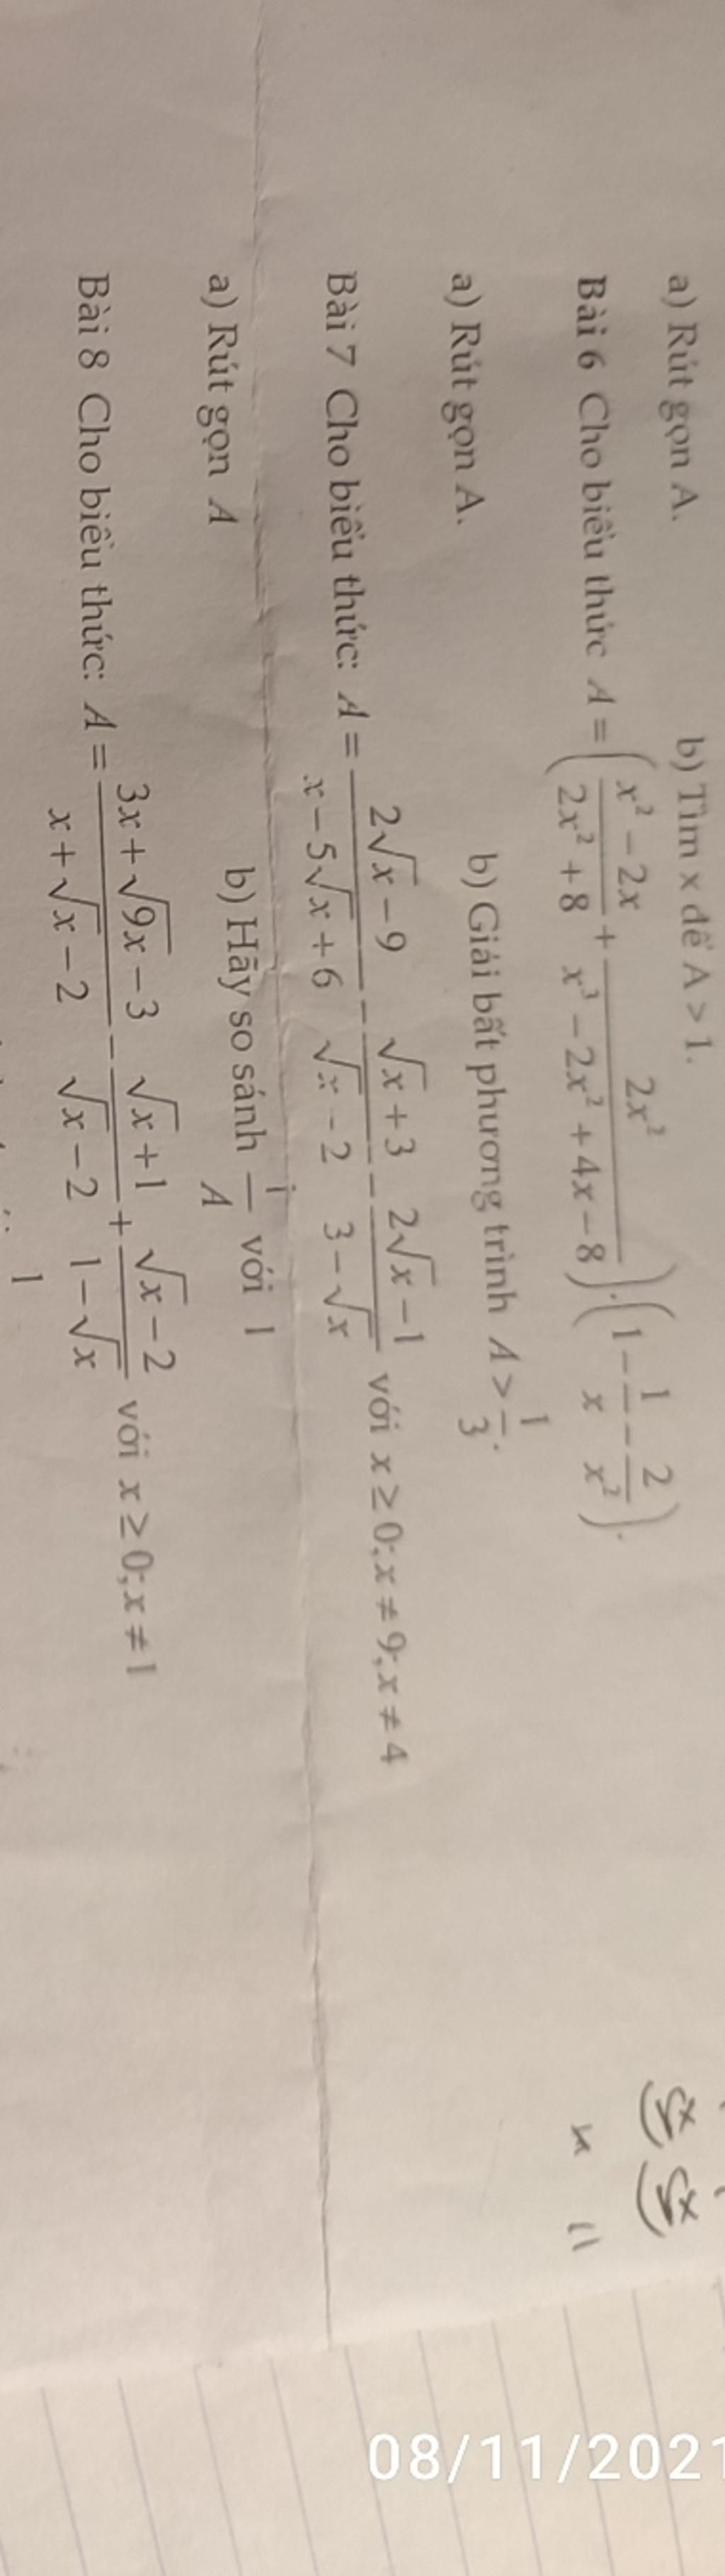 a) Rút gọn A. b) Tìm x để A > 1.
Bài 6 Cho biểu thức A = ( (x² − 2x)/(2x² + 8) + 2x²/(x³ − 2x² + 4x − 8) ) . ( 1 − 1/x − 2/x² ).
a) Rút gọn A. b) Giải bất phương trình A > 1/3.
Bài 7 Cho biểu thức: A = (2√x − 9)/(x − 5√x + 6) − (√x + 3)/(√x − 2) − (2√x − 1)/(3 − √x) với x ≥ 0; x ≠ 9; x ≠ 4
a) Rút gọn A b) Hãy so sánh 1/A với 1
Bài 8 Cho biểu thức: A = (3x + √9x − 3)/(x + √x − 2) − (√x + 1)/(√x − 2) + (√x − 2)/(1 − √x) với x ≥ 0; x ≠ 1
1
08/11/2021